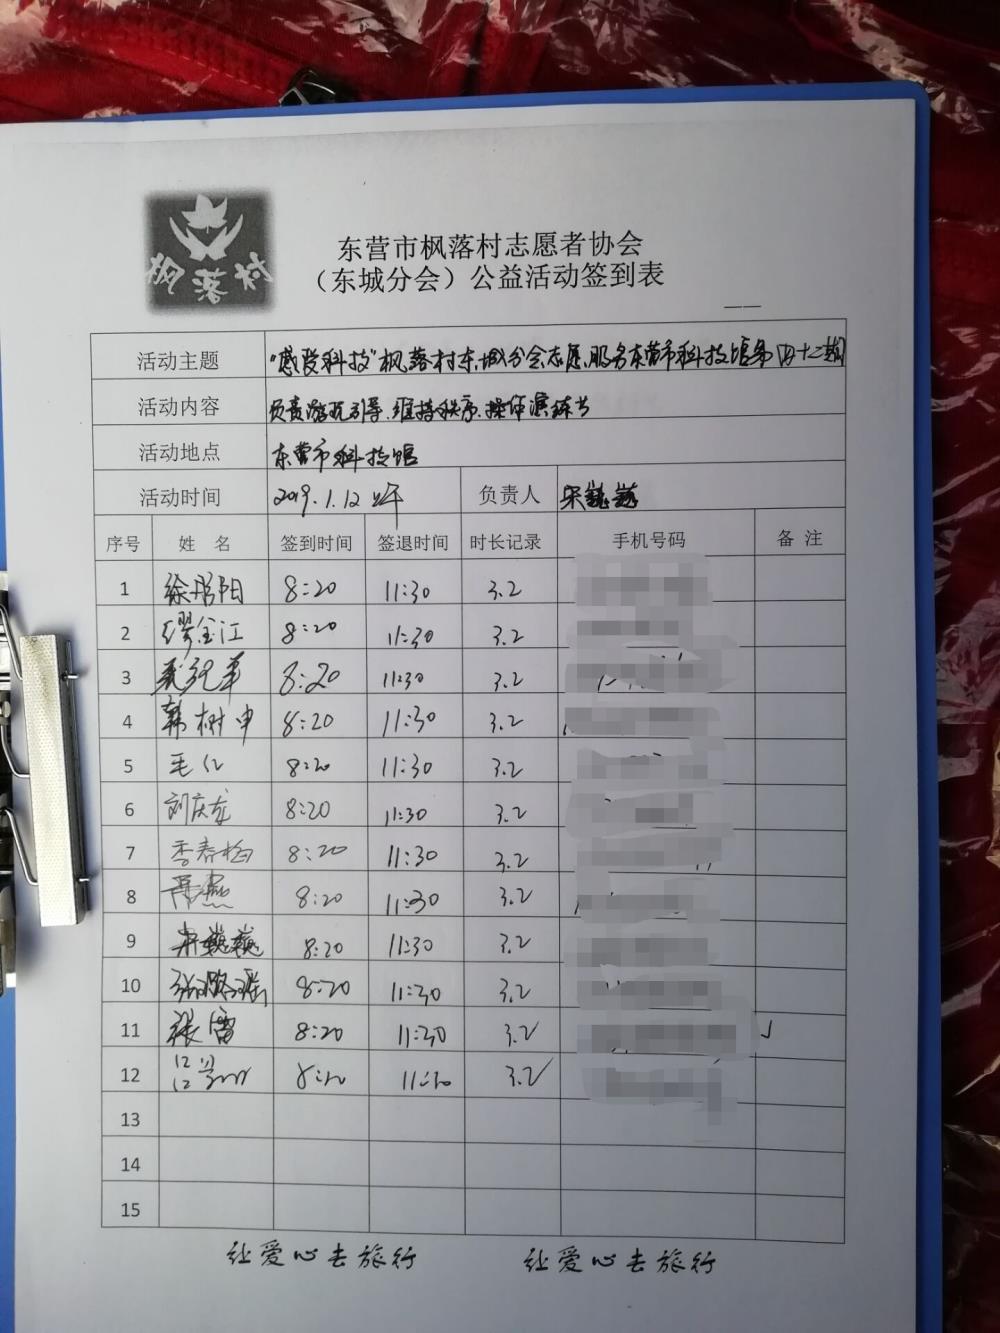 枫落村
东营市枫落村志愿者协会
（东城分会）公益活动签到表
活动主题 "感受科技"枫落村东城分会志愿服务东营市科技馆第四十二期
活动内容 负责游玩引导、维持秩序、操作演练等
活动地点 东营市科技馆
活动时间 2019.1.12 上午 负责人 宋巍巍
序号 姓名 签到时间 签退时间 时长记录 手机号码 备注
1 徐彤阳 8:20 11:30 3.2
2 缪金江 8:20 11:30 3.2
3 8:20 11:30 3.2
4 韩树申 8:20 11:30 3.2
5 毛仁 8:20 11:30 3.2
6 刘庆龙 8:20 11:30 3.2
7 李春梅 8:20 11:30 3.2
8 燕 8:20 11:30 3.2
9 宋巍巍 8:20 11:30 3.2
10 8:20 11:30 3.2
11 张雷 8:20 11:30 3.2
12 8:20 11:30 3.2
13
14
15
让爱心去旅行 让爱心去旅行